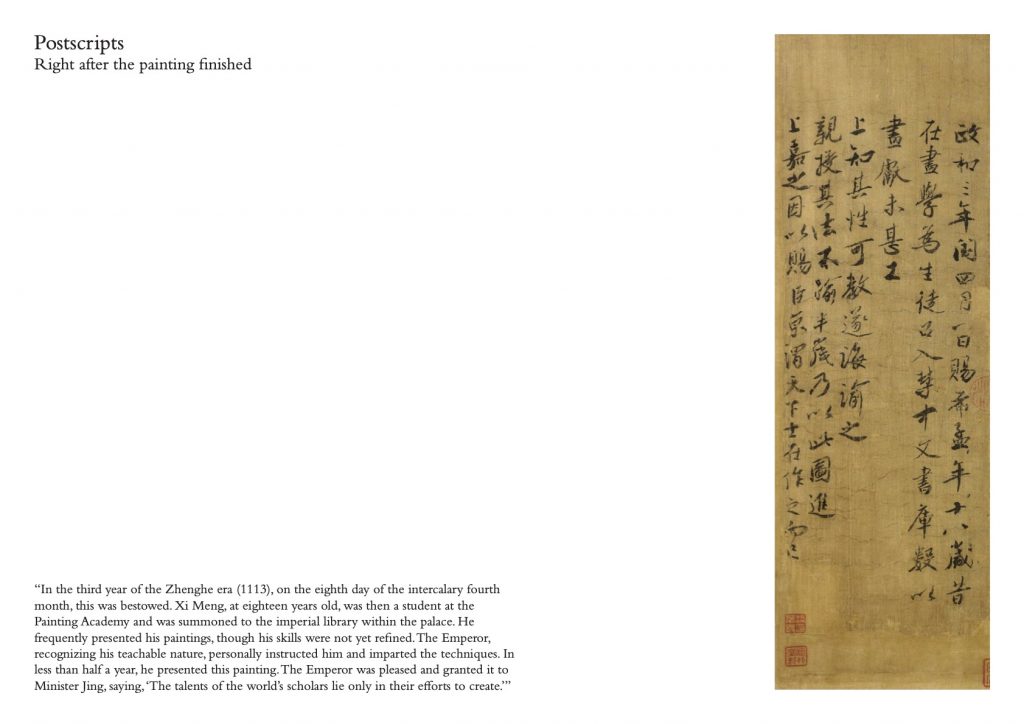 Postscripts
Right after the painting finished
政和三年閏四月一日賜希孟年十八歲昔
在畫學為生徒召入禁中文書庫數以
畫獻未甚工
上知其性可教遂誨諭之
親授其法不踰半歲乃以此圖進
上嘉之因以賜臣京謂天下士在作之而已
“In the third year of the Zhenghe era (1113), on the eighth day of the intercalary fourth
month, this was bestowed. Xi Meng, at eighteen years old, was then a student at the
Painting Academy and was summoned to the imperial library within the palace. He
frequently presented his paintings, though his skills were not yet refined. The Emperor,
recognizing his teachable nature, personally instructed him and imparted the techniques. In
less than half a year, he presented this painting. The Emperor was pleased and granted it to
Minister Jing, saying, ‘The talents of the world’s scholars lie only in their efforts to create.’”